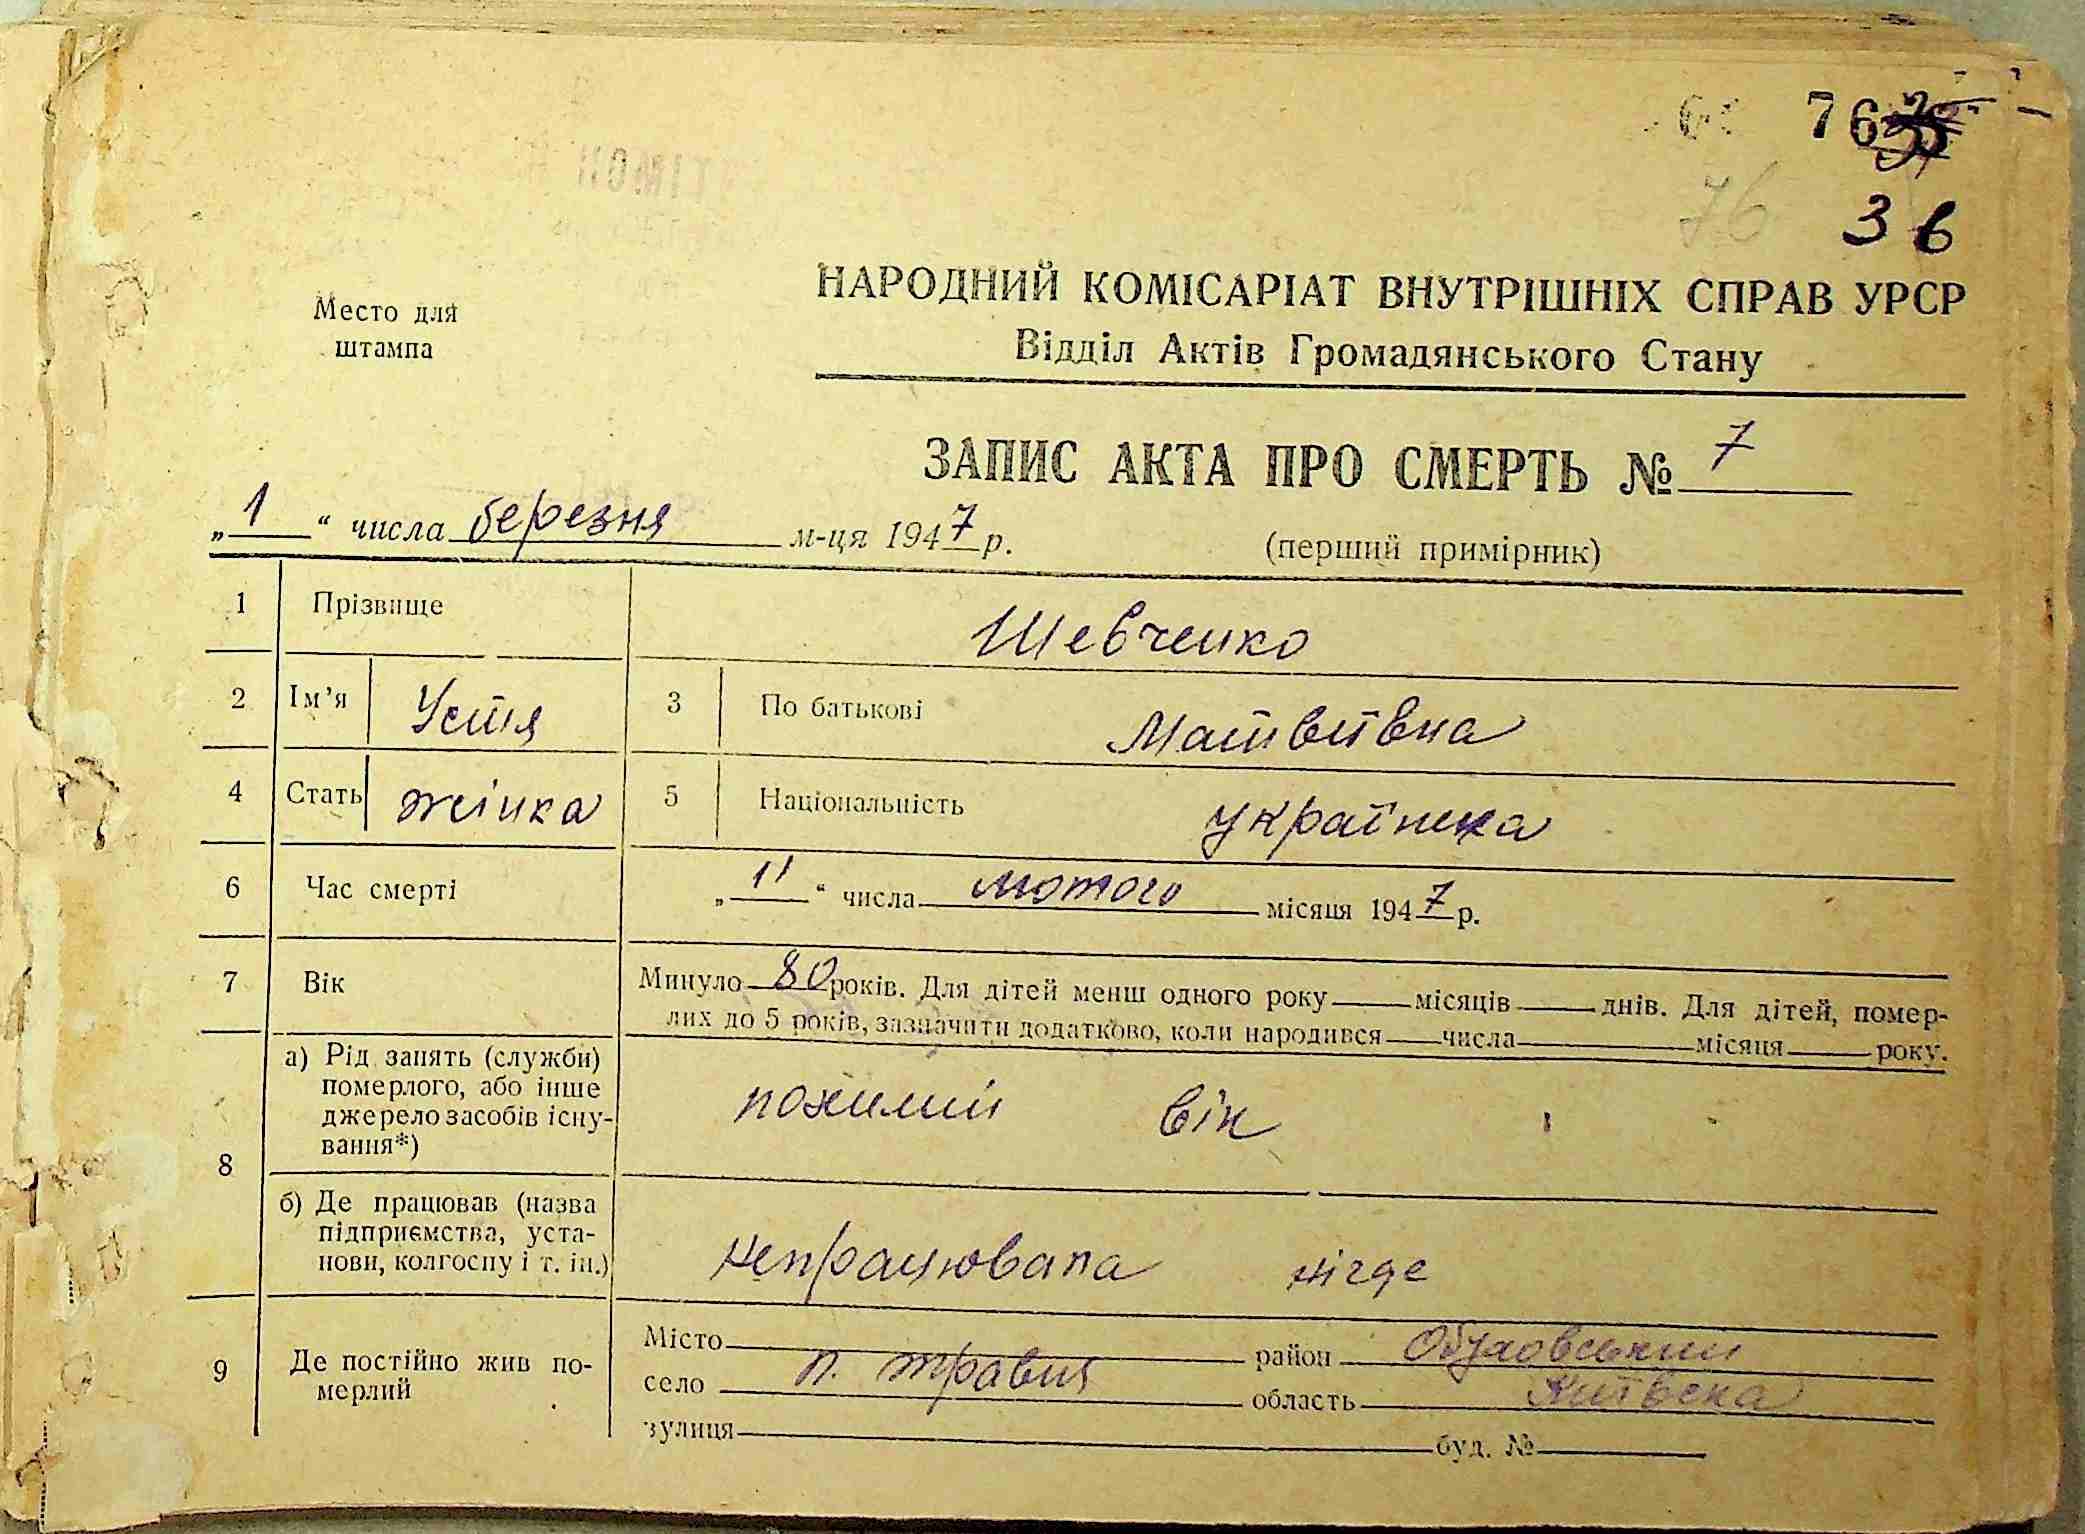 76
76
36
Место для
штампа
НАРОДНИЙ КОМІСАРІАТ ВНУТРІШНІХ СПРАВ УРСР
Відділ Актів Громадянського Стану
ЗАПИС АКТА ПРО СМЕРТЬ № 7
„1“ числа березня м-ця 1947 р.
(перший примірник)
1 Прізвище Шевченко
2 Ім’я Устя 3 По батькові Матвіївна
4 Стать жінка 5 Національність українка
6 Час смерті „11“ числа лютого місяця 1947 р.
7 Вік Минуло 80 років. Для дітей менш одного року місяців днів. Для дітей, помер-
лих до 5 років, зазначити додатково, коли народився числа місяця року.
8 а) Рід занять (служби)
померлого, або інше
джерело засобів існу-
вання*)
похилий вік
б) Де працював (назва
підприємства, уста-
нови, колгоспу і т. ін.)
непрацювала нігде
9 Де постійно жив по-
мерлий
Місто район Обуховський
село п. травня область Київська
вулиця буд. №